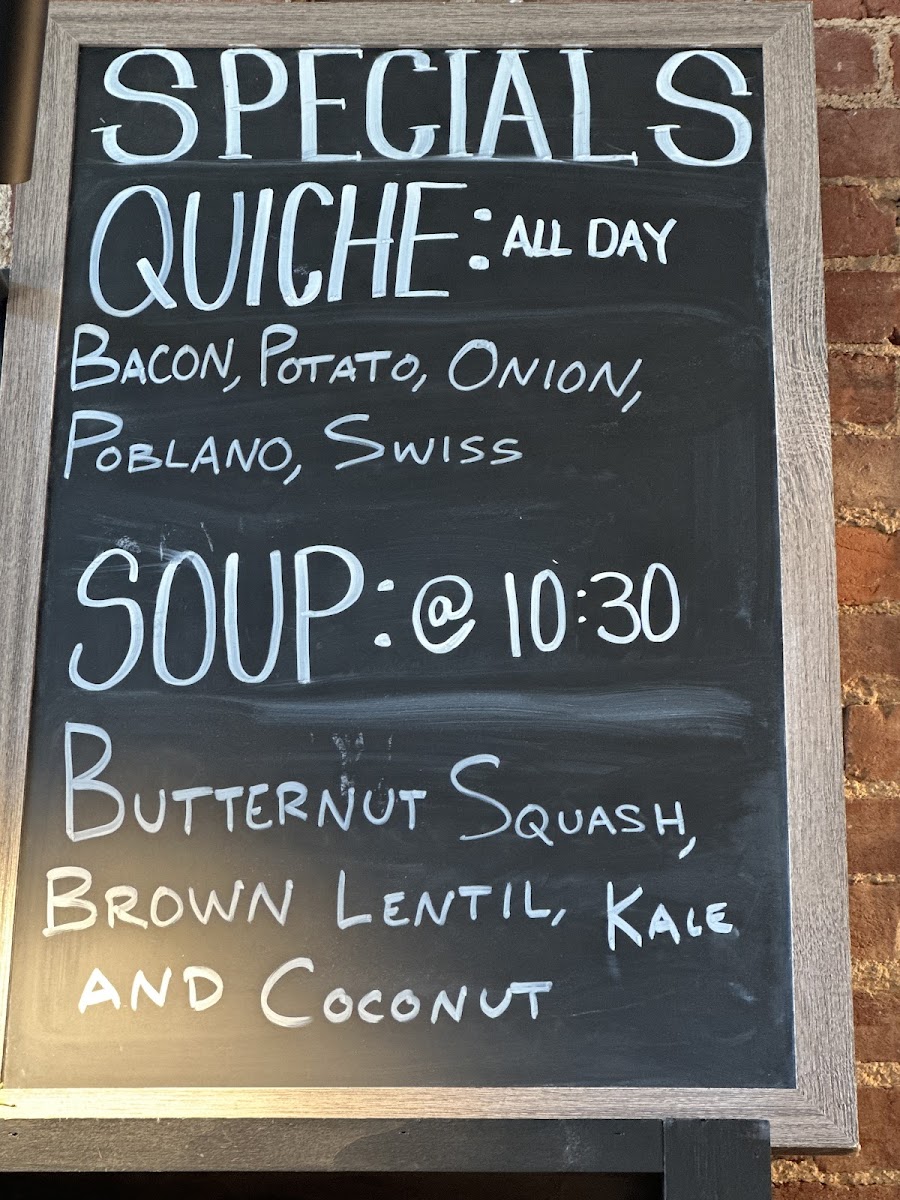 SPECIALS
QUICHE: ALL DAY
BACON, POTATO, ONION,
POBLANO, SWISS
SOUP: @ 10:30
BUTTERNUT SQUASH,
BROWN LENTIL, KALE
AND COCONUT